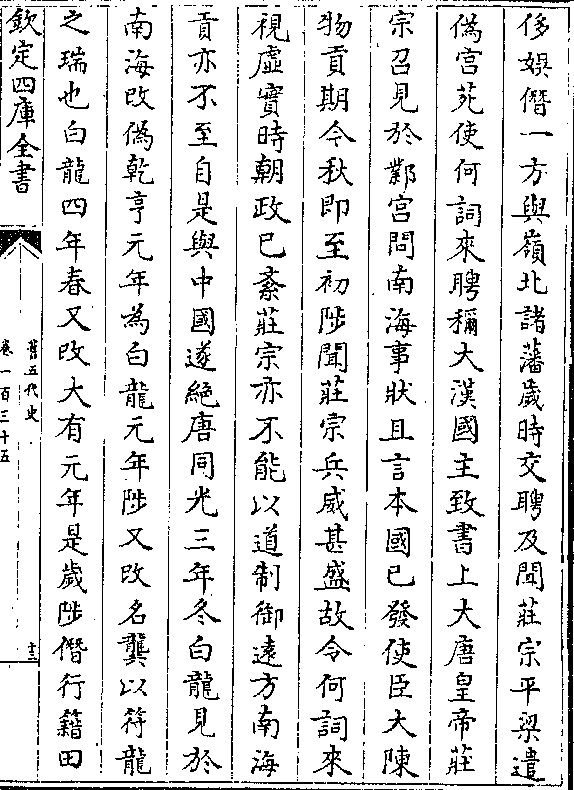 侈娯僭一方與嶺北諸藩歲時交聘及聞莊宗平梁遣
偽宫苑使何詞來聘稱大漢國主致書上大唐皇帝莊
宗召見於鄴宫問南海事狀且言本國已發使臣大陳
物貢期今秋即至初陟聞莊宗兵威甚盛故令何詞來
視虛實時朝政已紊莊宗亦不能以道制御遠方南海
貢亦不至自是與中國遂絶唐同光三年冬白龍見於
南海改偽乾亨元年為白龍元年陟又改名龔以符龍
之瑞也白龍四年春又改大有元年是歲陟僭行籍田
欽定四庫全書
舊五代史
卷一百三十五
十三